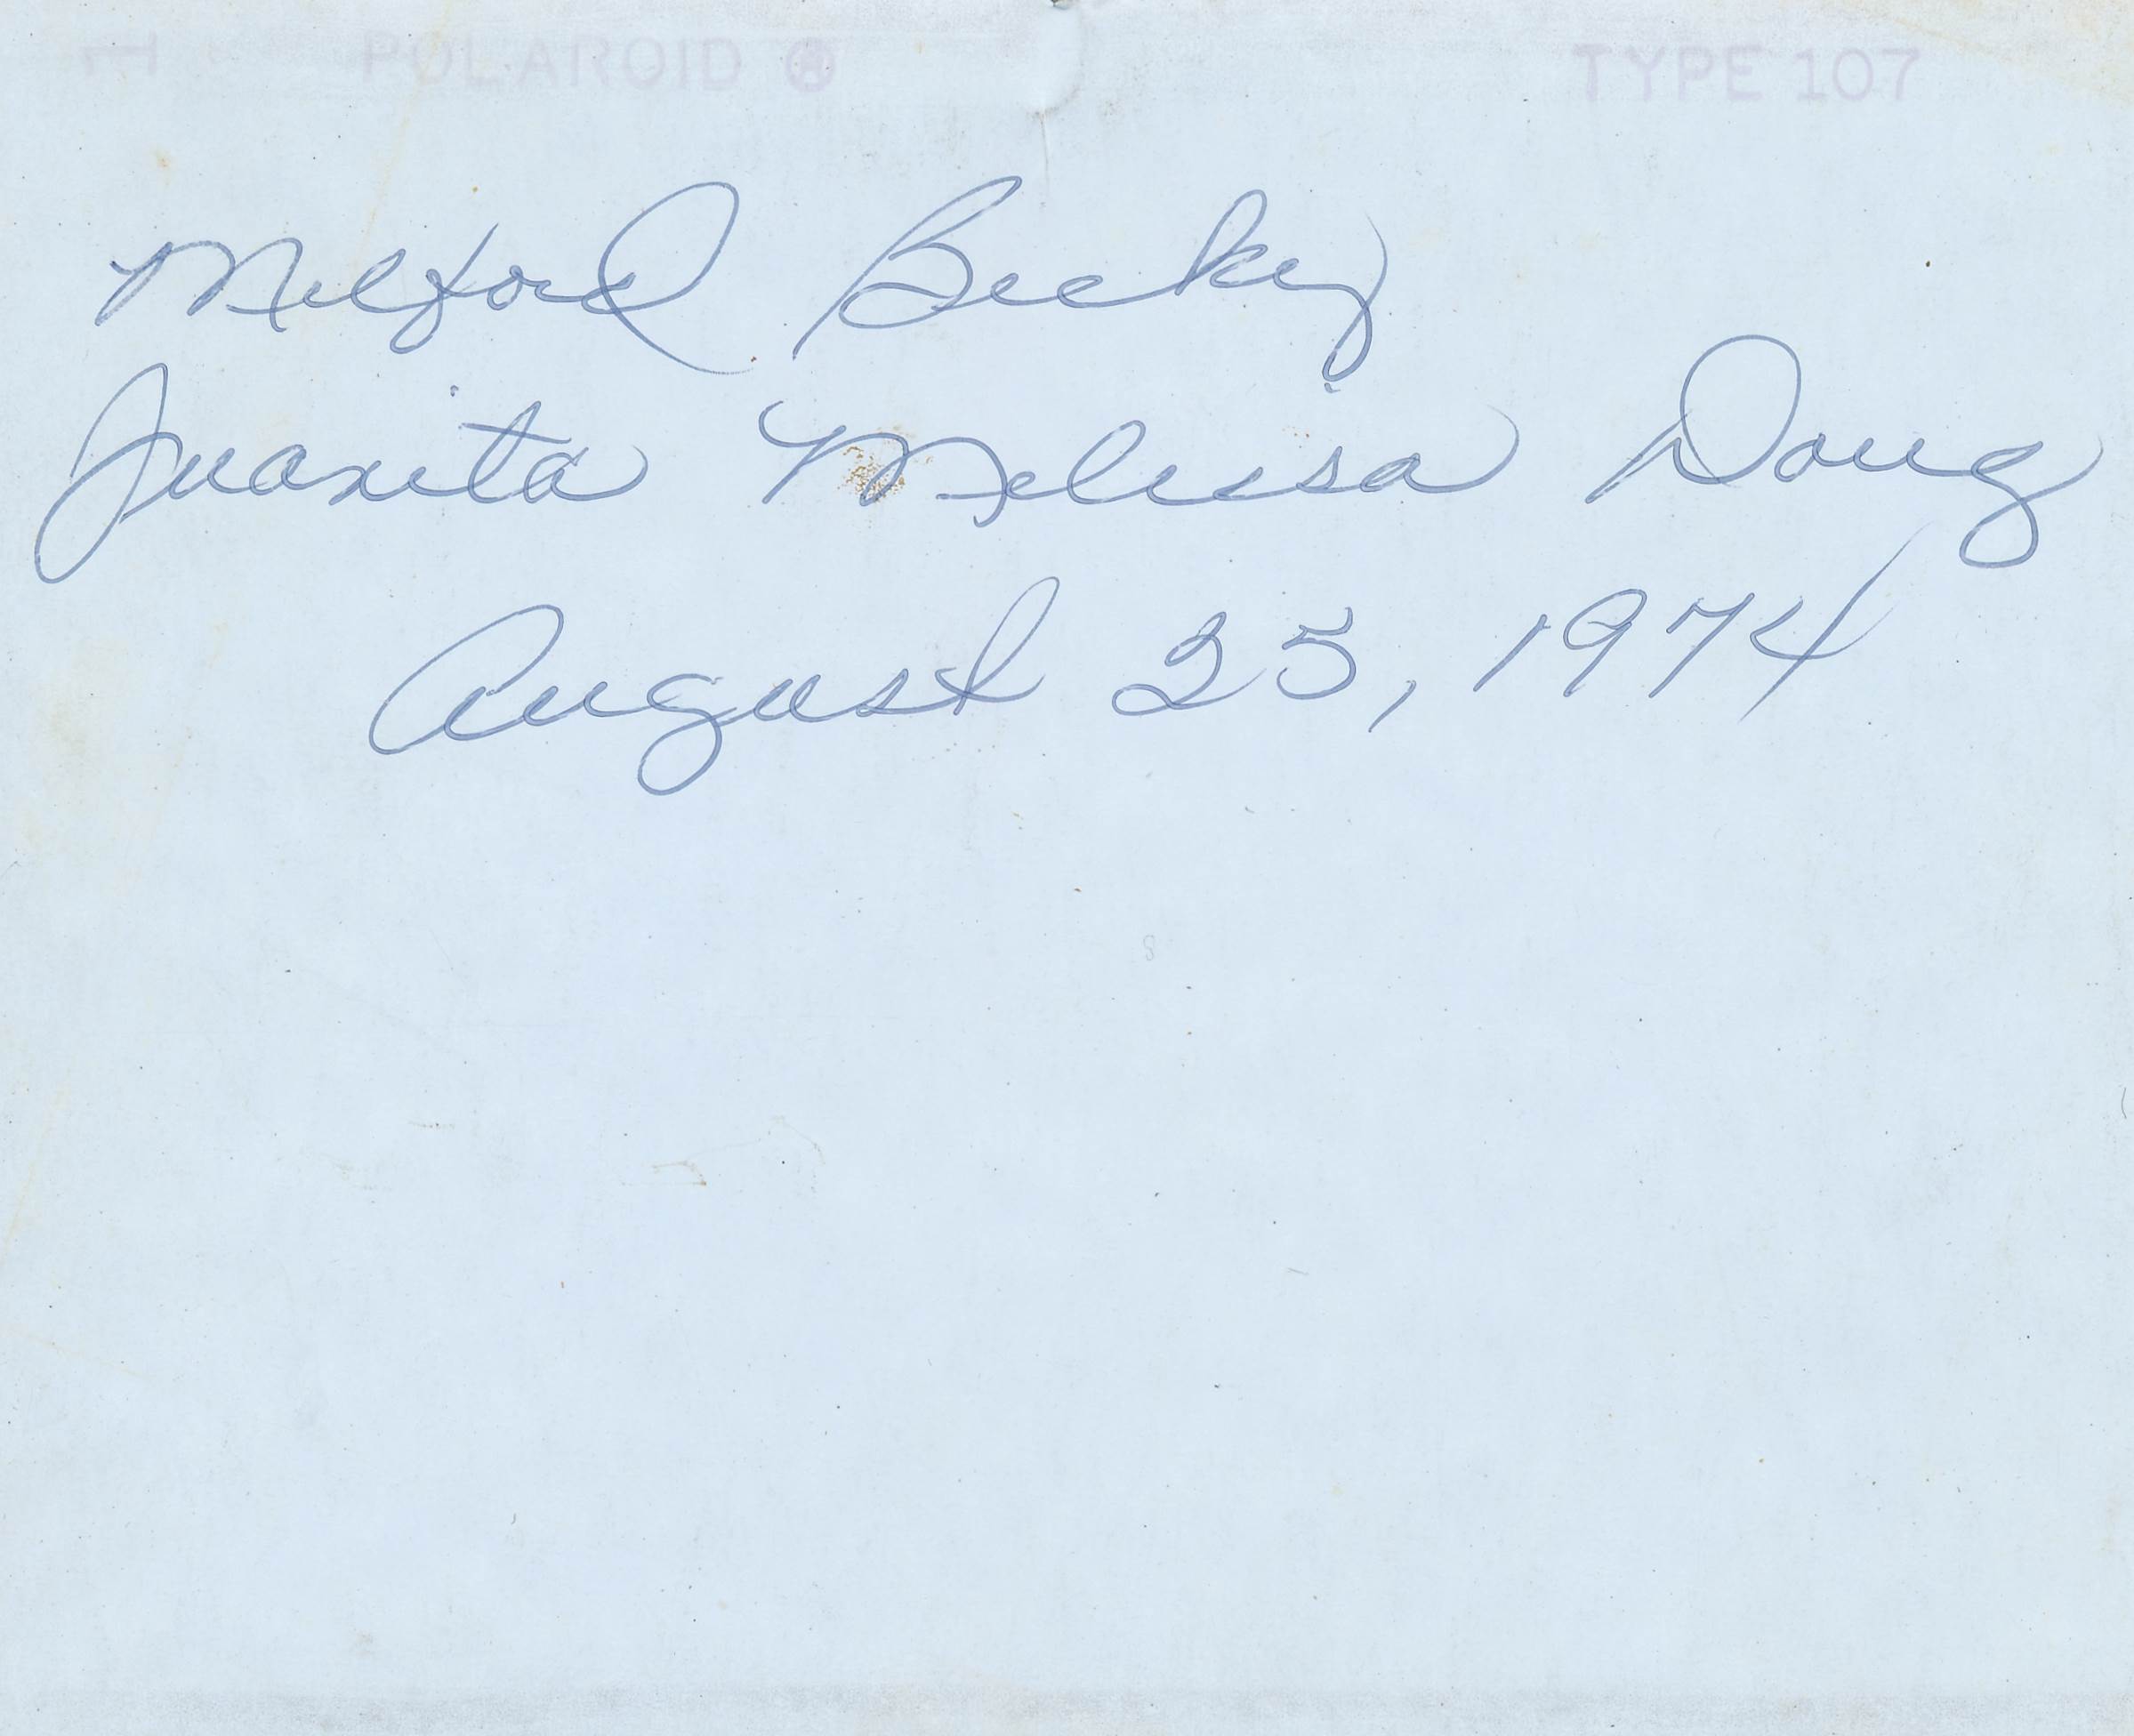 POLAROID ® TYPE 107
Milford Becky
Juanita Melissa Doug
August 25, 1974